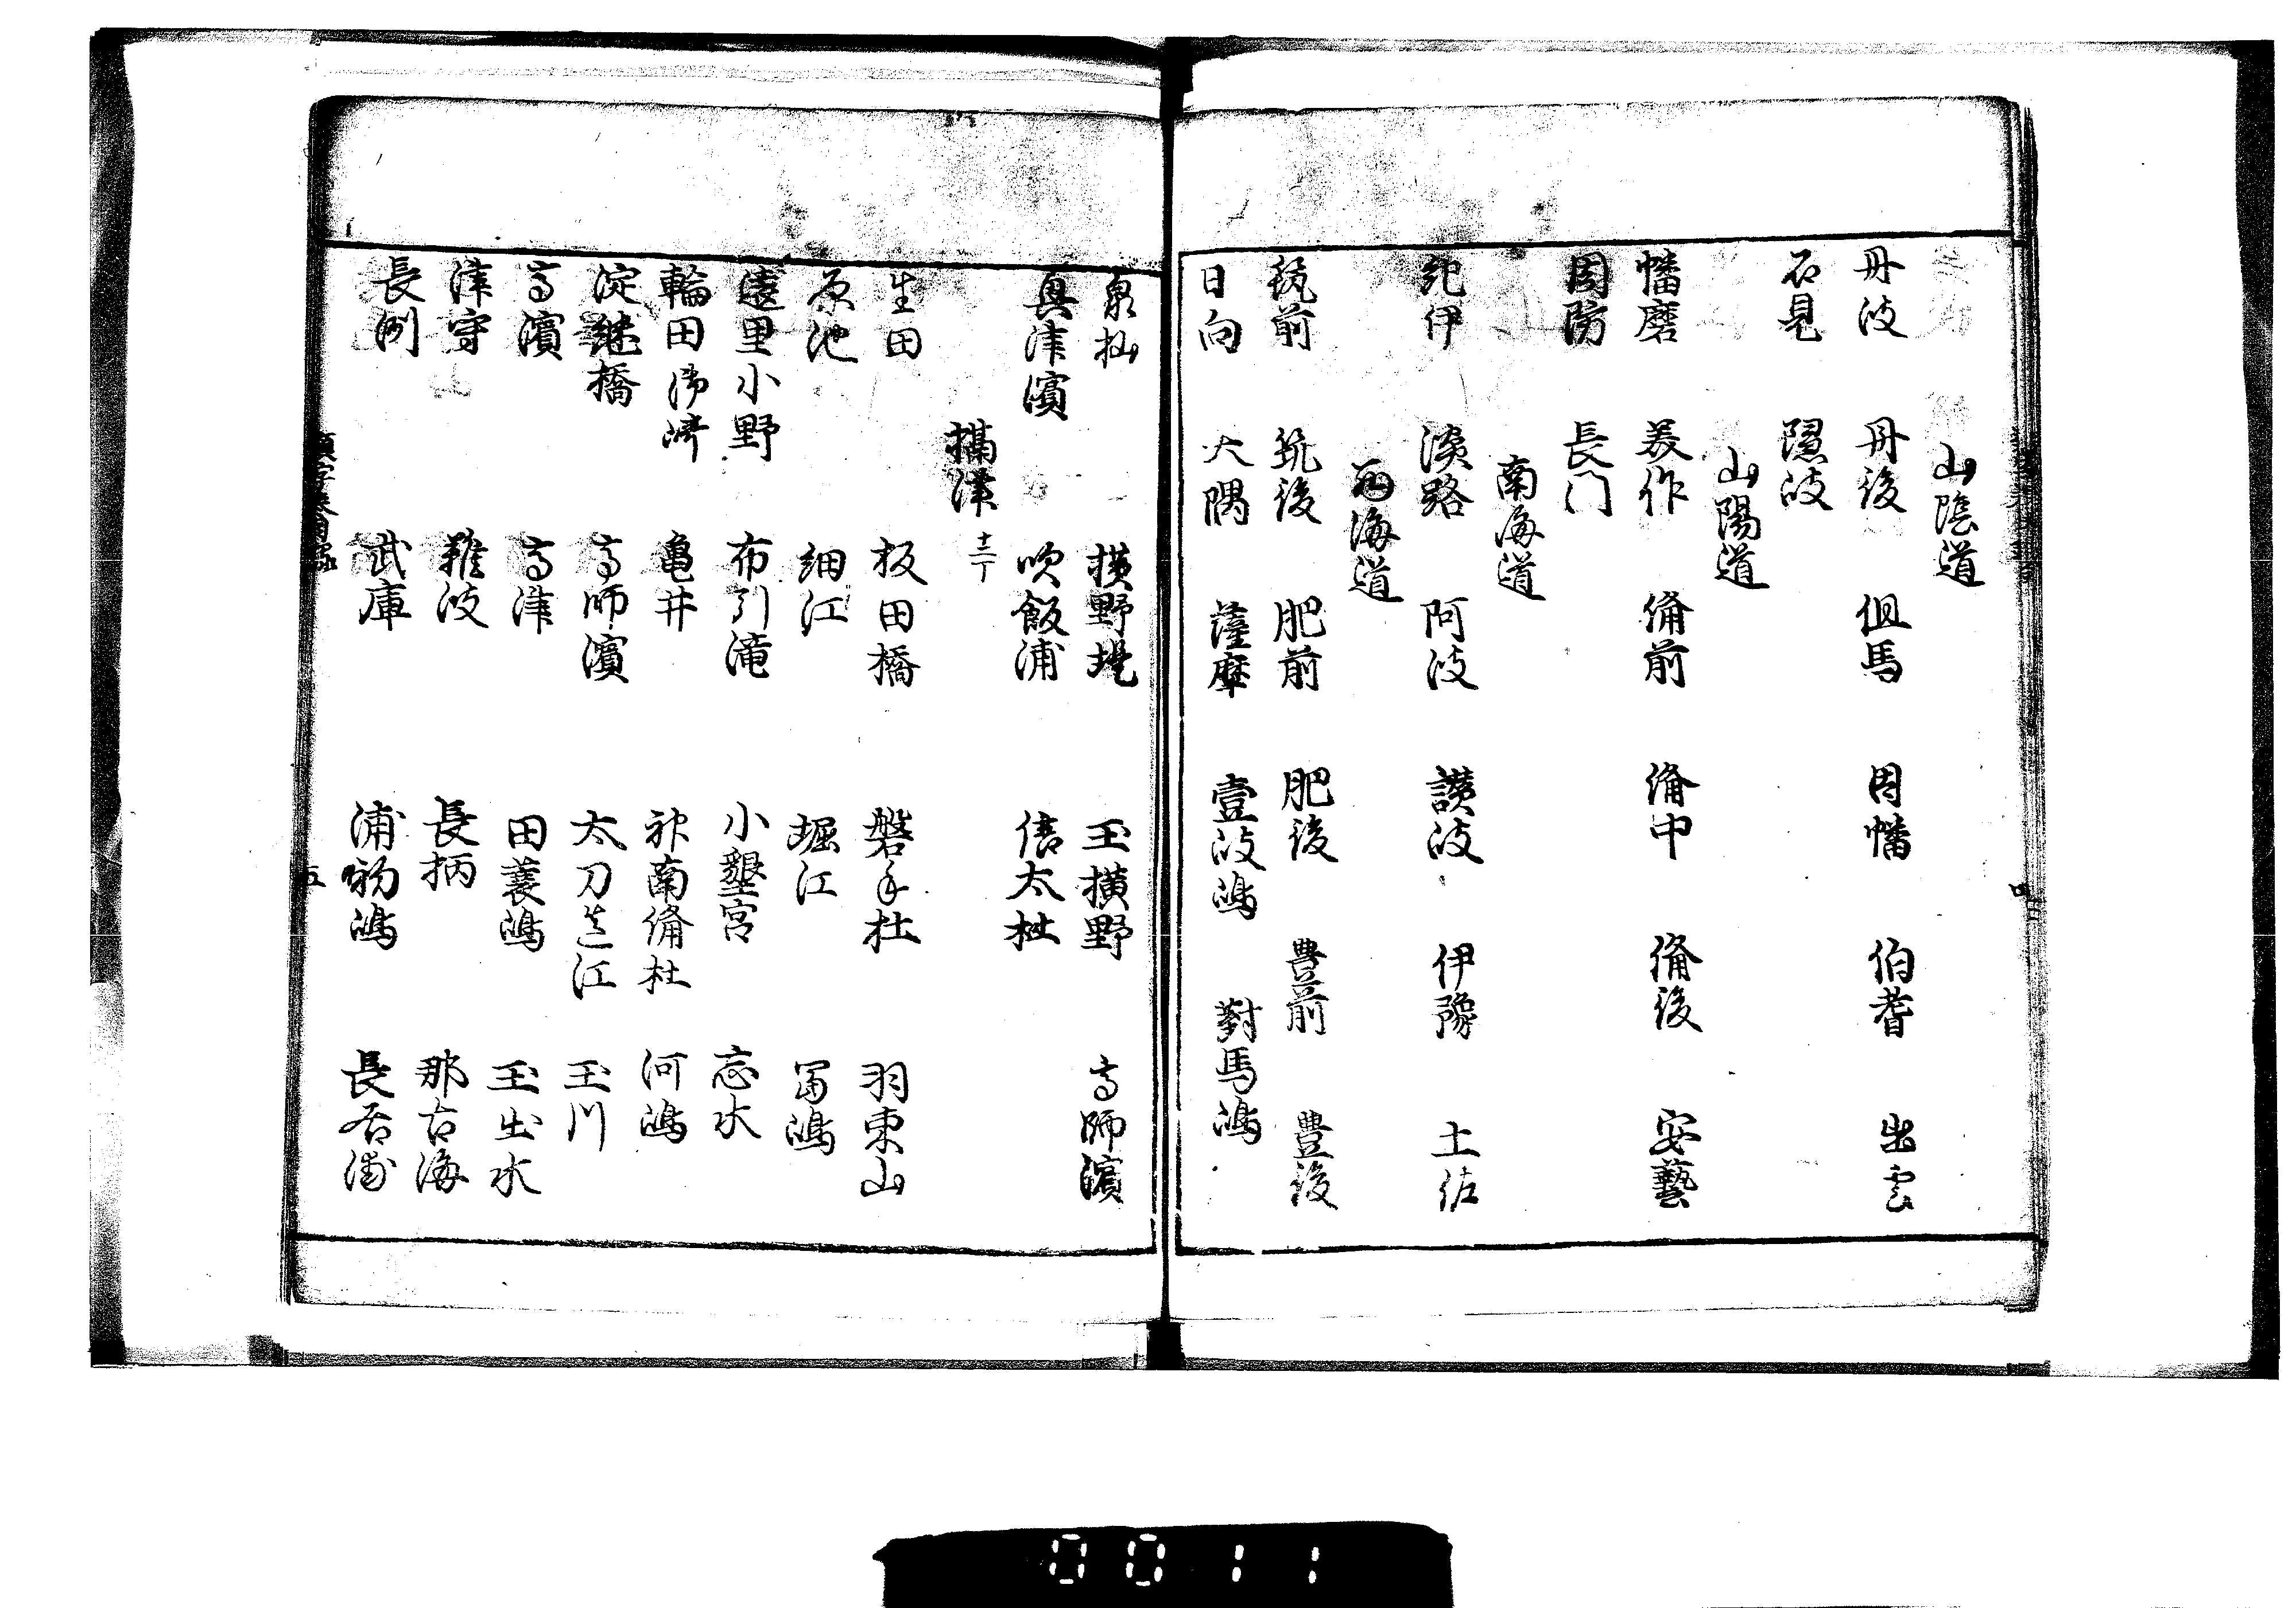 山陰道
丹波 丹後 但馬 因幡 伯耆 出雲
石見 隠岐
山陽道
幡磨 美作 備前 備中 備後 安藝
周防 長门
南海道
紀伊 淡路 阿波 讃岐 伊豫 土佐
西海道
筑前 筑後 肥前 肥後 豊前 豊後
日向 大隅 薩摩 壹岐嶋 對馬嶋
泉杣 横野堤 玉横野 高師濱
奥津濱 吹飯浦 信太杜
攝津 十三丁
生田 板田橋 磐手杜 羽束山
原池 細江 堀江 冨嶋
遠里小野 布引滝 小墾宮 忘水
輪田御崎 亀井 神南備杜 河嶋
淀継橋 高师濱 太刀造江 玉川
高濱 高津 田蓑嶋 玉出水
津守 難波 長柄 那古海
長洲 武庫 浦初嶋 長居浦
五
0011